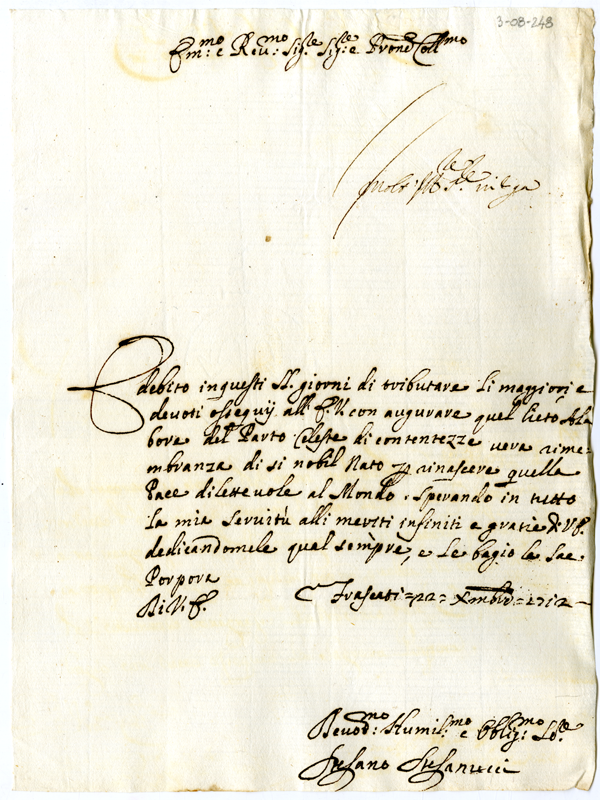 3-08-248
Em:mo e Rev:mo Sig:re Sig:re e Prone Coll:mo
È debito in questi SS. giorni di tributare li maggiori e
devoti ossequij all'E.V. con augurare quel lieto Alla
bore del Parto Celeste di contentezze vera rime=
mbranza di si nobil Nato p rinascere quella
Pace dilettevole al Mondo. Sperando in tutto
la mia servitù alli meriti infiniti e gratie di V.E.
dedicandomele qual sempre, e le bagio la Sac.
Porpora
Di V.E. Frascati = 22 = Xmbre = 1712
Devod:mo Humil:mo e Oblig:mo Se:re
Stefano Stefanucci